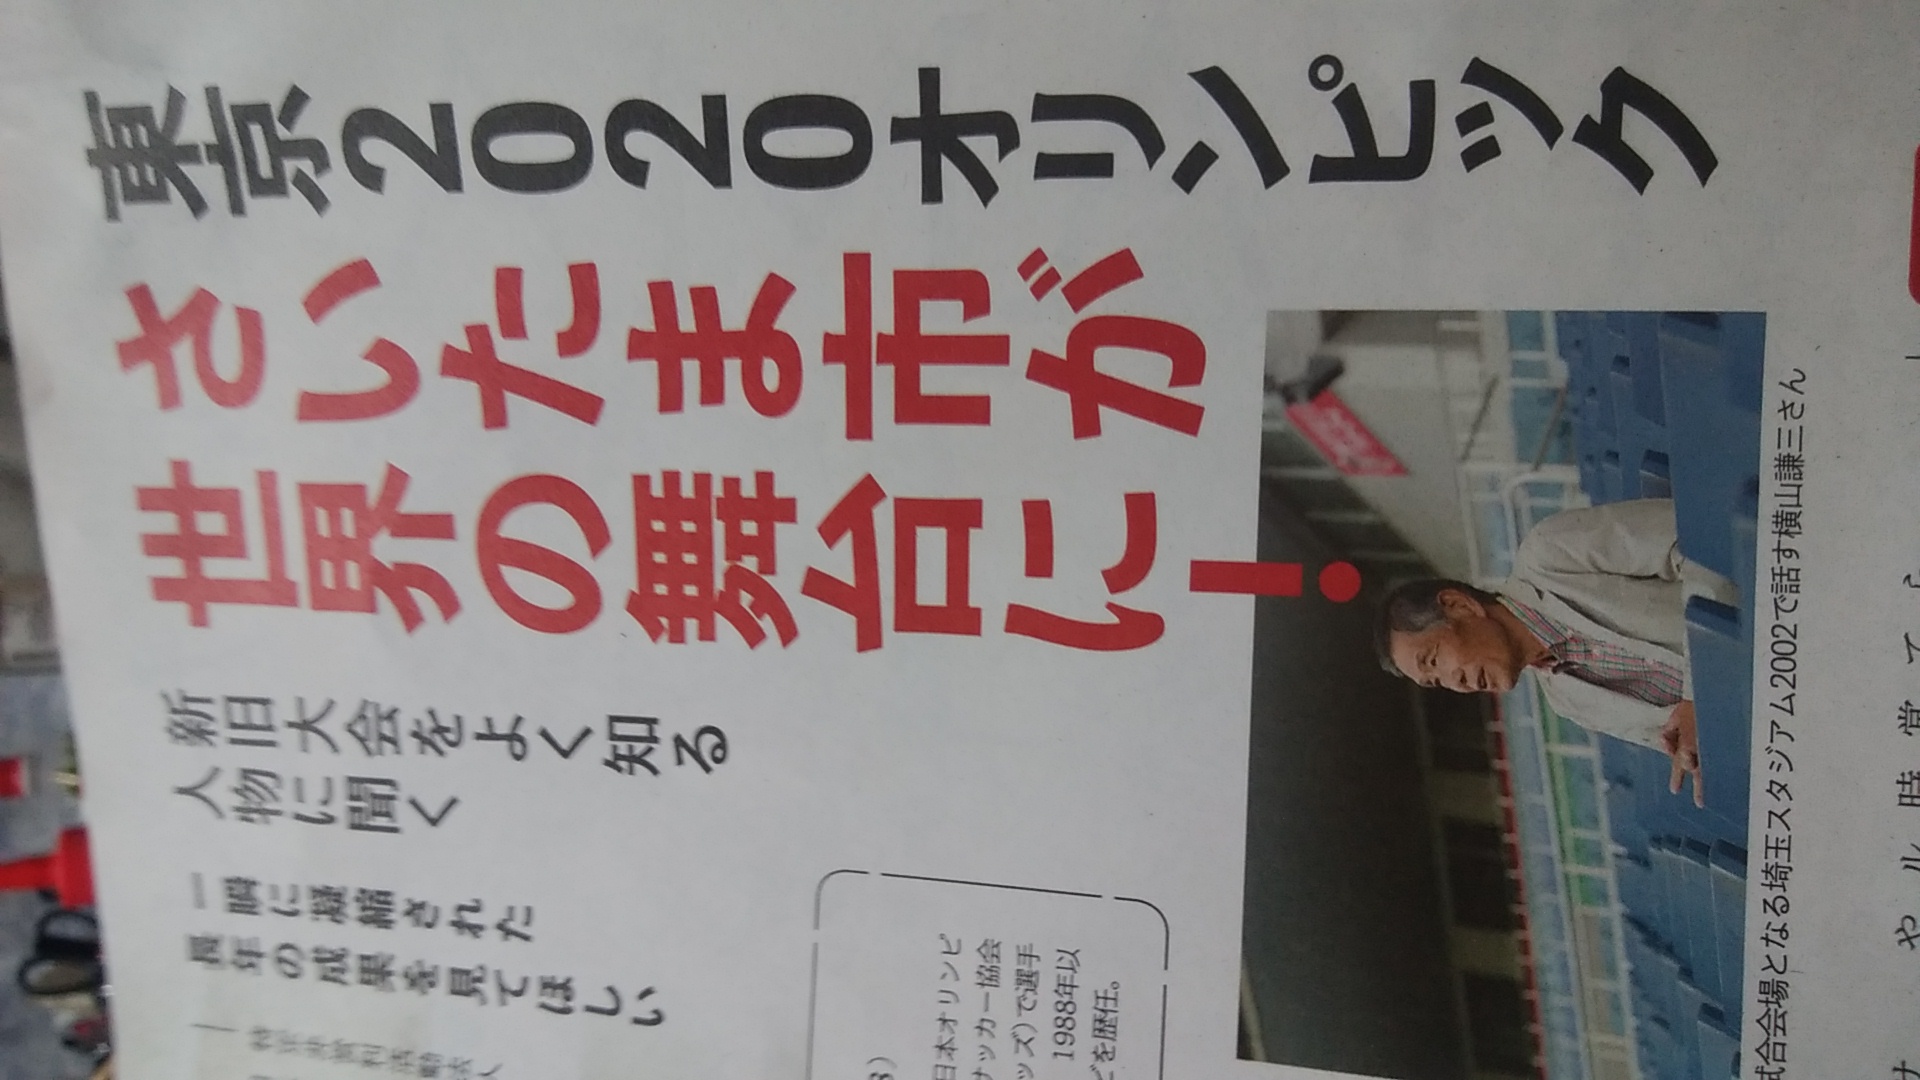 東京2020オリンピック
さいたま市が
世界の舞台に!
新旧大会をよく知る
人物に聞く
一瞬に凝縮された
長年の成果を見てほしい
特定非営利活動法人
日本オリンピ
サッカー協会
ッズ)で選手
1988年以
どを歴任。
試合会場となる埼玉スタジアム2002で話す横山謙三さん